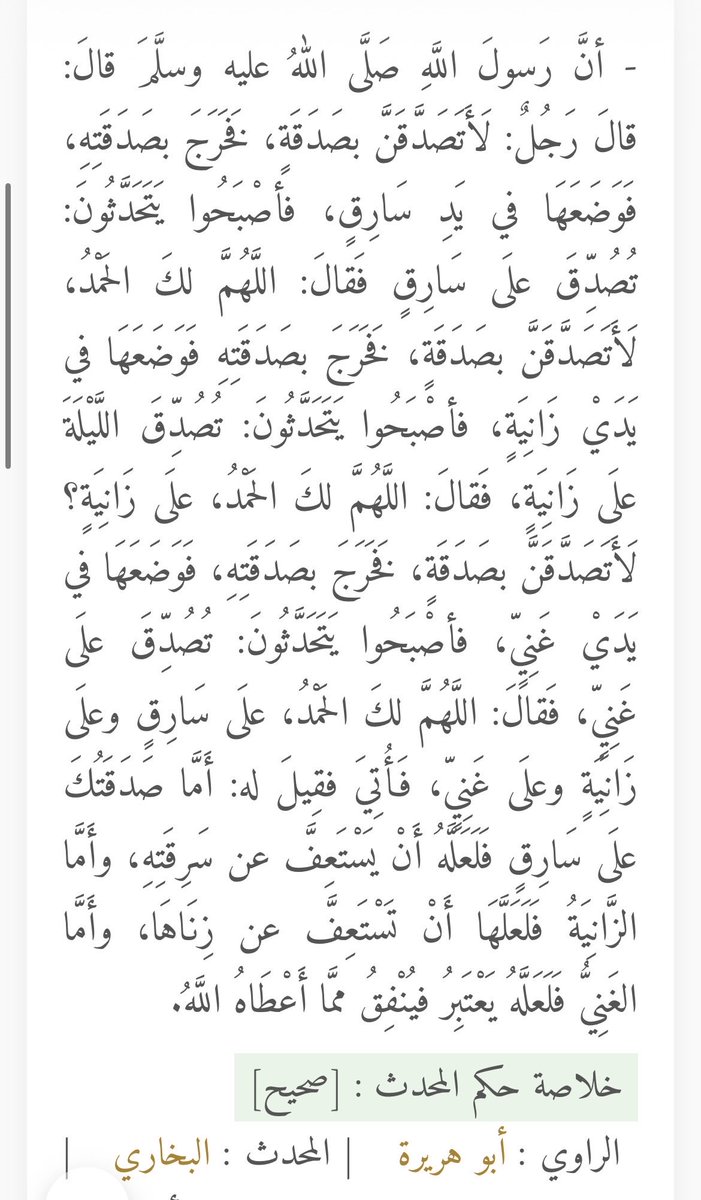 - أنَّ رَسولَ اللَّهِ صَلَّى اللهُ عليه وسلَّمَ قالَ:
قالَ رَجُلٌ: لَأَتَصَدَّقَنَّ بصَدَقَةٍ، فَخَرَجَ بصَدَقَتِهِ،
فَوَضَعَهَا في يَدِ سَارِقٍ، فأصْبَحُوا يَتَحَدَّثُونَ:
تُصُدِّقَ علَى سَارِقٍ فَقالَ: اللَّهُمَّ لكَ الحَمْدُ،
لَأَتَصَدَّقَنَّ بصَدَقَةٍ، فَخَرَجَ بصَدَقَتِهِ فَوَضَعَهَا في
يَدَيْ زَانِيَةٍ، فأصْبَحُوا يَتَحَدَّثُونَ: تُصُدِّقَ اللَّيْلَةَ
علَى زَانِيَةٍ، فَقالَ: اللَّهُمَّ لكَ الحَمْدُ، علَى زَانِيَةٍ؟
لَأَتَصَدَّقَنَّ بصَدَقَةٍ، فَخَرَجَ بصَدَقَتِهِ، فَوَضَعَهَا في
يَدَيْ غَنِيٍّ، فأصْبَحُوا يَتَحَدَّثُونَ: تُصُدِّقَ علَى
غَنِيٍّ، فَقالَ: اللَّهُمَّ لكَ الحَمْدُ، علَى سَارِقٍ وعلَى
زَانِيَةٍ وعلَى غَنِيٍّ، فَأُتِيَ فقِيلَ له: أَمَّا صَدَقَتُكَ
علَى سَارِقٍ فَلَعَلَّهُ أَنْ يَسْتَعِفَّ عن سَرِقَتِهِ، وأَمَّا
الزَّانِيَةُ فَلَعَلَّهَا أَنْ تَسْتَعِفَّ عن زِنَاهَا، وأَمَّا
الغَنِيُّ فَلَعَلَّهُ يَعْتَبِرُ فيُنْفِقُ ممَّا أَعْطَاهُ اللَّهُ.
خلاصة حكم المحدث : [صحيح]
الراوي : أبو هريرة | المحدث : البخاري |